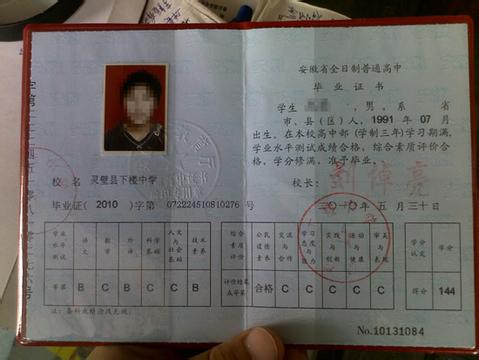 校 名 灵璧县下楼中学
毕业证( 2010 )字第 072224510810276 号
学业水平测试 语文 数学 外语 科学基础 人文与社会基础 技术素养
等第 B C B C C B
注:各科成绩涂改无效。
安徽省全日制普通高中
毕 业 证 书
学生 ,男,系 省
市、县(区)人,1991 年 07 月
出生。在本校高中部(学制三年)学习期满,
学业水平测试成绩合格,综合素质评价合
格,学分修满,准予毕业。
校长:
二〇一〇年 五 月 三十 日
综合素质评价 公民道德素养 交流与合作 学习态度与能力 实践与创新 运动与健康 审美与表现 学分认定 学分
评价结果或等第 合格 C C C C C 得分 144
No.10131084